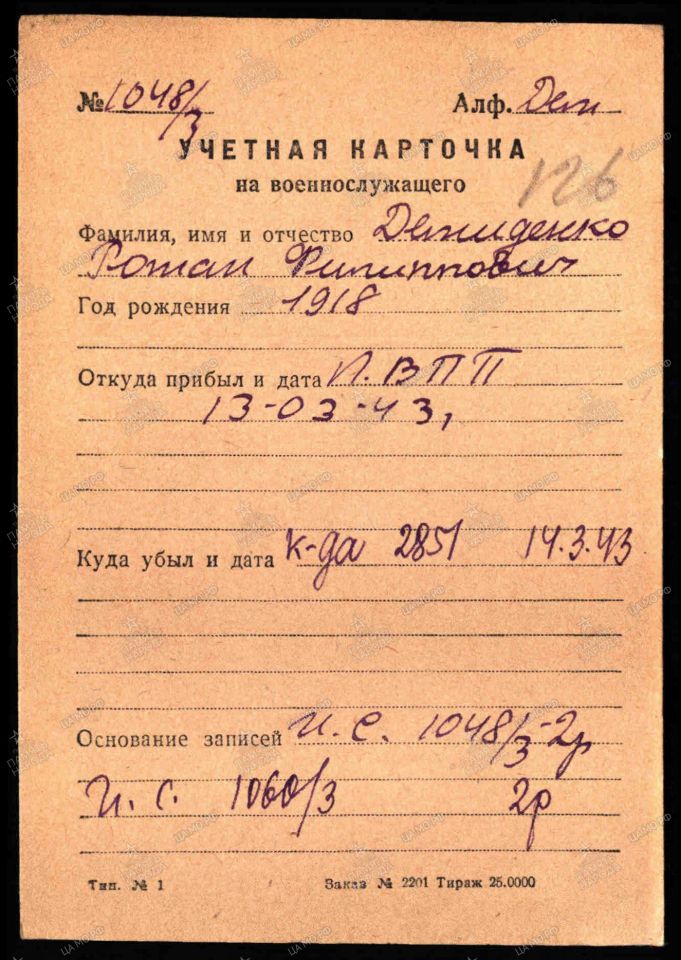 № 1048/3 Алф. Дем
УЧЕТНАЯ КАРТОЧКА
на военнослужащего
126
Фамилия, имя и отчество Демиденко
Роман Филиппович
Год рождения 1918
Откуда прибыл и дата Л. ВПП
13-03-43,
Куда убыл и дата к-да 2851 14.3.43
Основание записей И. С. 1048/3-2р
И. С. 1060/3 2р
Тип. № 1 Заказ № 2201 Тираж 25.0000